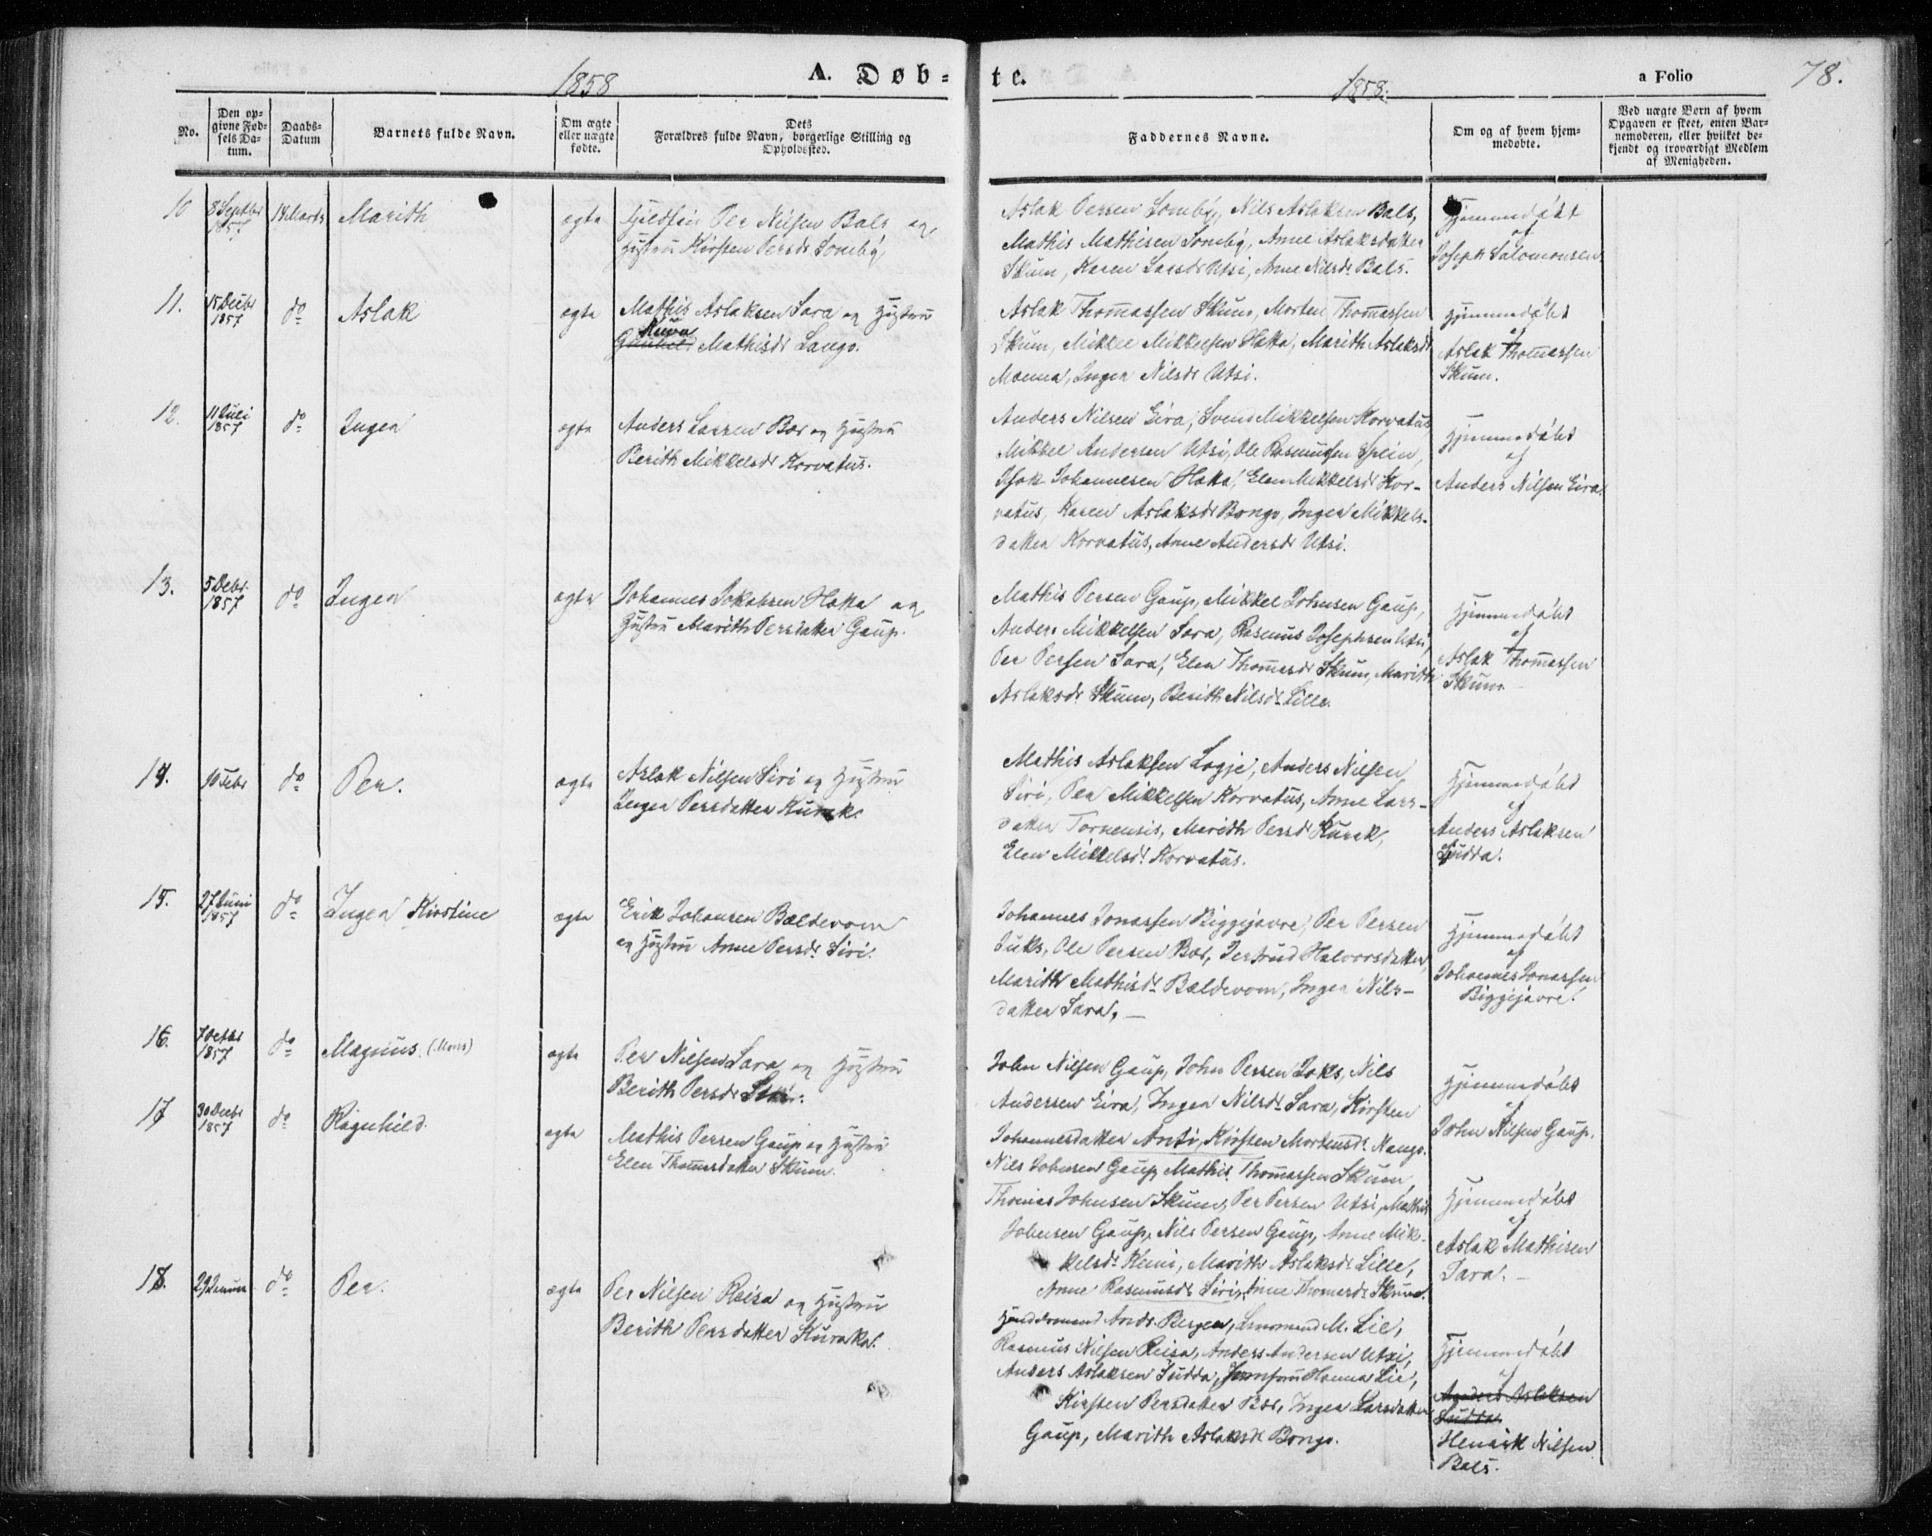 1858
A. Døb-
te.
1858.
a Folio
78.
No.
Den op-
givne Fød-
sels Da-
tum.
Daabs-
Datum
Barnets fulde Navn.
Om ægte
eller uægte
fødte.
Dets
Forældres fulde Navn, borgerlige Stilling og
Opholdssted.
Faddernes Navne.
Om og af hvem hjem-
medøbte.
Ved uægte Børn af hvem
Opgaven er skeet, enten Bar-
nemoderen, eller hvilket be-
kjendt og troværdigt Medlem
af Menigheden.
10
8 Septbr
1857
14 Marts
Marith
ægte
Per Nilsen Bals og
Hustru Kirsten Persdr Somby
Aslak Persen Somby, Nils Aslaksen Bals,
Mathis Mathisen Somby, Anne Aslaksdatter
Skum, Karen Larsdr Utsi, Anne Nilsdr Bals.
Hjemmedøbt
af
Joseph Salomonsen
11.
15 Decbr
1857
do
Aslak
ægte
Mathis Aslaksen Sara og Hustru
Mathisdr Lango.
Aslak Thomassen Skum, Morten Thomassen
Skum, Mikkel Mikkelsen Hætta, Marith Aslaksdr
Inger Nilsdr Utsi.
Hjemmedøbt
af
Aslak Thomassen
Skum.
12.
11 Juli
1857
do
Inger
ægte
Anders Larsen Bær og Hustru
Berith Mikkelsdr Korvatus.
Anders Nilsen Eira, Svend Mikkelsen Korvatus,
Mikkel Andersen Utsi, Ole Rasmussen Spein,
Isak Johannesen Hætta, Elen Mikkelsdr Kor-
vatus, Karen Aslaksdr Bongo, Inger Mikkels-
datter Korvatus, Anne Andersdr Utsi.
Hjemmedøbt
af
Anders Nilsen Eira.
13.
5 Decbr.
1857
do
Inger
ægte
Johannes Jokabsen Hætta og
Hustru Marith Persdatter Gaup.
Mathis Persen Gaup, Mikkel Johnsen Gaup,
Anders Mikkelsen Sara, Rasmus Josephsen Utsi,
Per Persen Sara, Elen Thomasdr Skum, Marith
Aslaksdr Skum, Berith Nilsdr Lille.
Hjemmedøbt
af
Aslak Thomassen
Skum. –
14.
do
Per.
ægte
Aslak Nilsen Siri og Hustru
Inger Persdatter Kurak.
Mathis Aslaksen Logje, Anders Nilsen
Siri, Per Mikkelsen Korvatus, Anne Lars-
datter Tornensis, Marith Persdr Kurak,
Elen Mikkelsdr Korvatus.
Hjemmedøbt
af
Anders Aslaksen
Judda.
15.
27 Juni
1857
do
Inger Kirstine
ægte
Erik Johansen Bældevom
og Hustru Anne Persdr Siri.
Johannes Jonassen Biggijavre, Per Persen
Juks, Ole Persen Bær, Gertrud Halvorsdatter,
Marith Mathisdr Bældevom, Inger Nils-
datter Sara. —
Hjemmedøbt
af
Johannes Jonassen
Biggijavre.
16.
7 Octbr
1857
do
Magnus. (Mons)
ægte
Per Nilsen Sara og Hustru
Berith Persdr
John Nilsen Gaup, John Persen Joks, Nils
Andersen Eira, Inger Nilsdr Sara, Kirsten
Johannesdatter Anti, Kirsten Mortensdr Mango.
Hjemmedøbt
af
John Nilsen Gaup.
17
30 Decbr
1857
do
Ragnhild.
ægte
Mathis Persen Gaup og Hustru
Elen Thomasdatter Skum.
Nils Johnsen Gaup, Mathis Thomassen Skum,
Thomas Johnsen Skum, Per Persen Utsi, Mathis
Johnsen Gaup, Nils Persen Gaup, Anne Mik-
kelsdr Kemi, Marith Aslaksdr Lille,
Anne Rasmusdr Siri, Anne Thomasdr Skum.
Hjemmedøbt
af
Aslak Mathisen
Sara. –
18.
do
Per.
ægte
Per Nilsen Reisa og Hustru
Berith Persdatter Kurak.
Handelsmand Andr. Bergen, Lensmand M. Lie,
Rasmus Nilsen Reisa, Anders Andersen Utsi,
Anders Aslaksen Judda, Jomfru Hanna Lie,
Kirsten Persdatter Bær, Inger Larsdatter
Gaup, Marith Aslaksdr Bongo.
Hjemmedøbt
af
Anders Aslaksen
Judda
Henrik Nilsen
Bals.